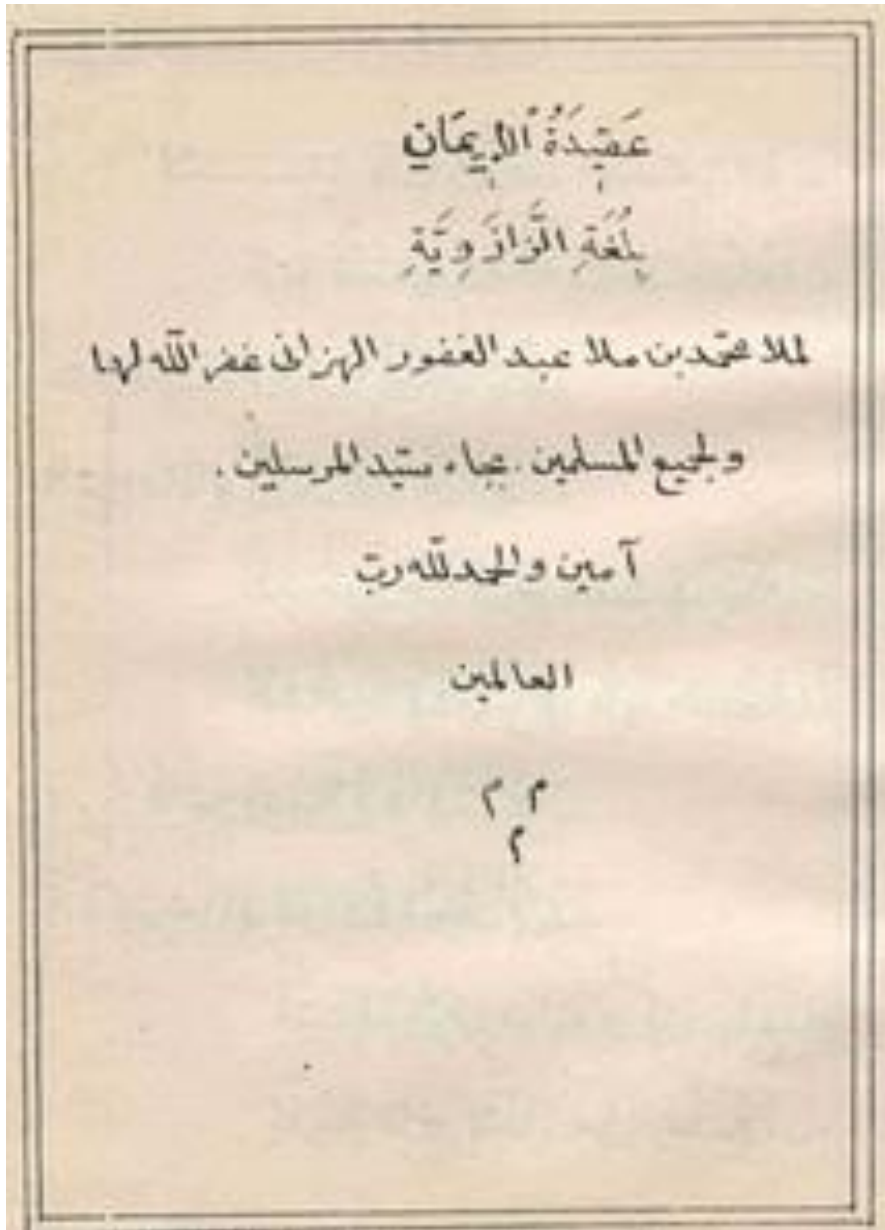 عَقِيدَةُ الْاِيمَانِ
بِلُغَةِ الزَّازَوِيَّةِ
لملا محمّد بن ملا عبد الغفور الهزانى غفر الله لهما
ولجميع المسلمين. بجاه سيّد المرسلين.
آمين والحمد لله ربّ
العالمين
م م
م